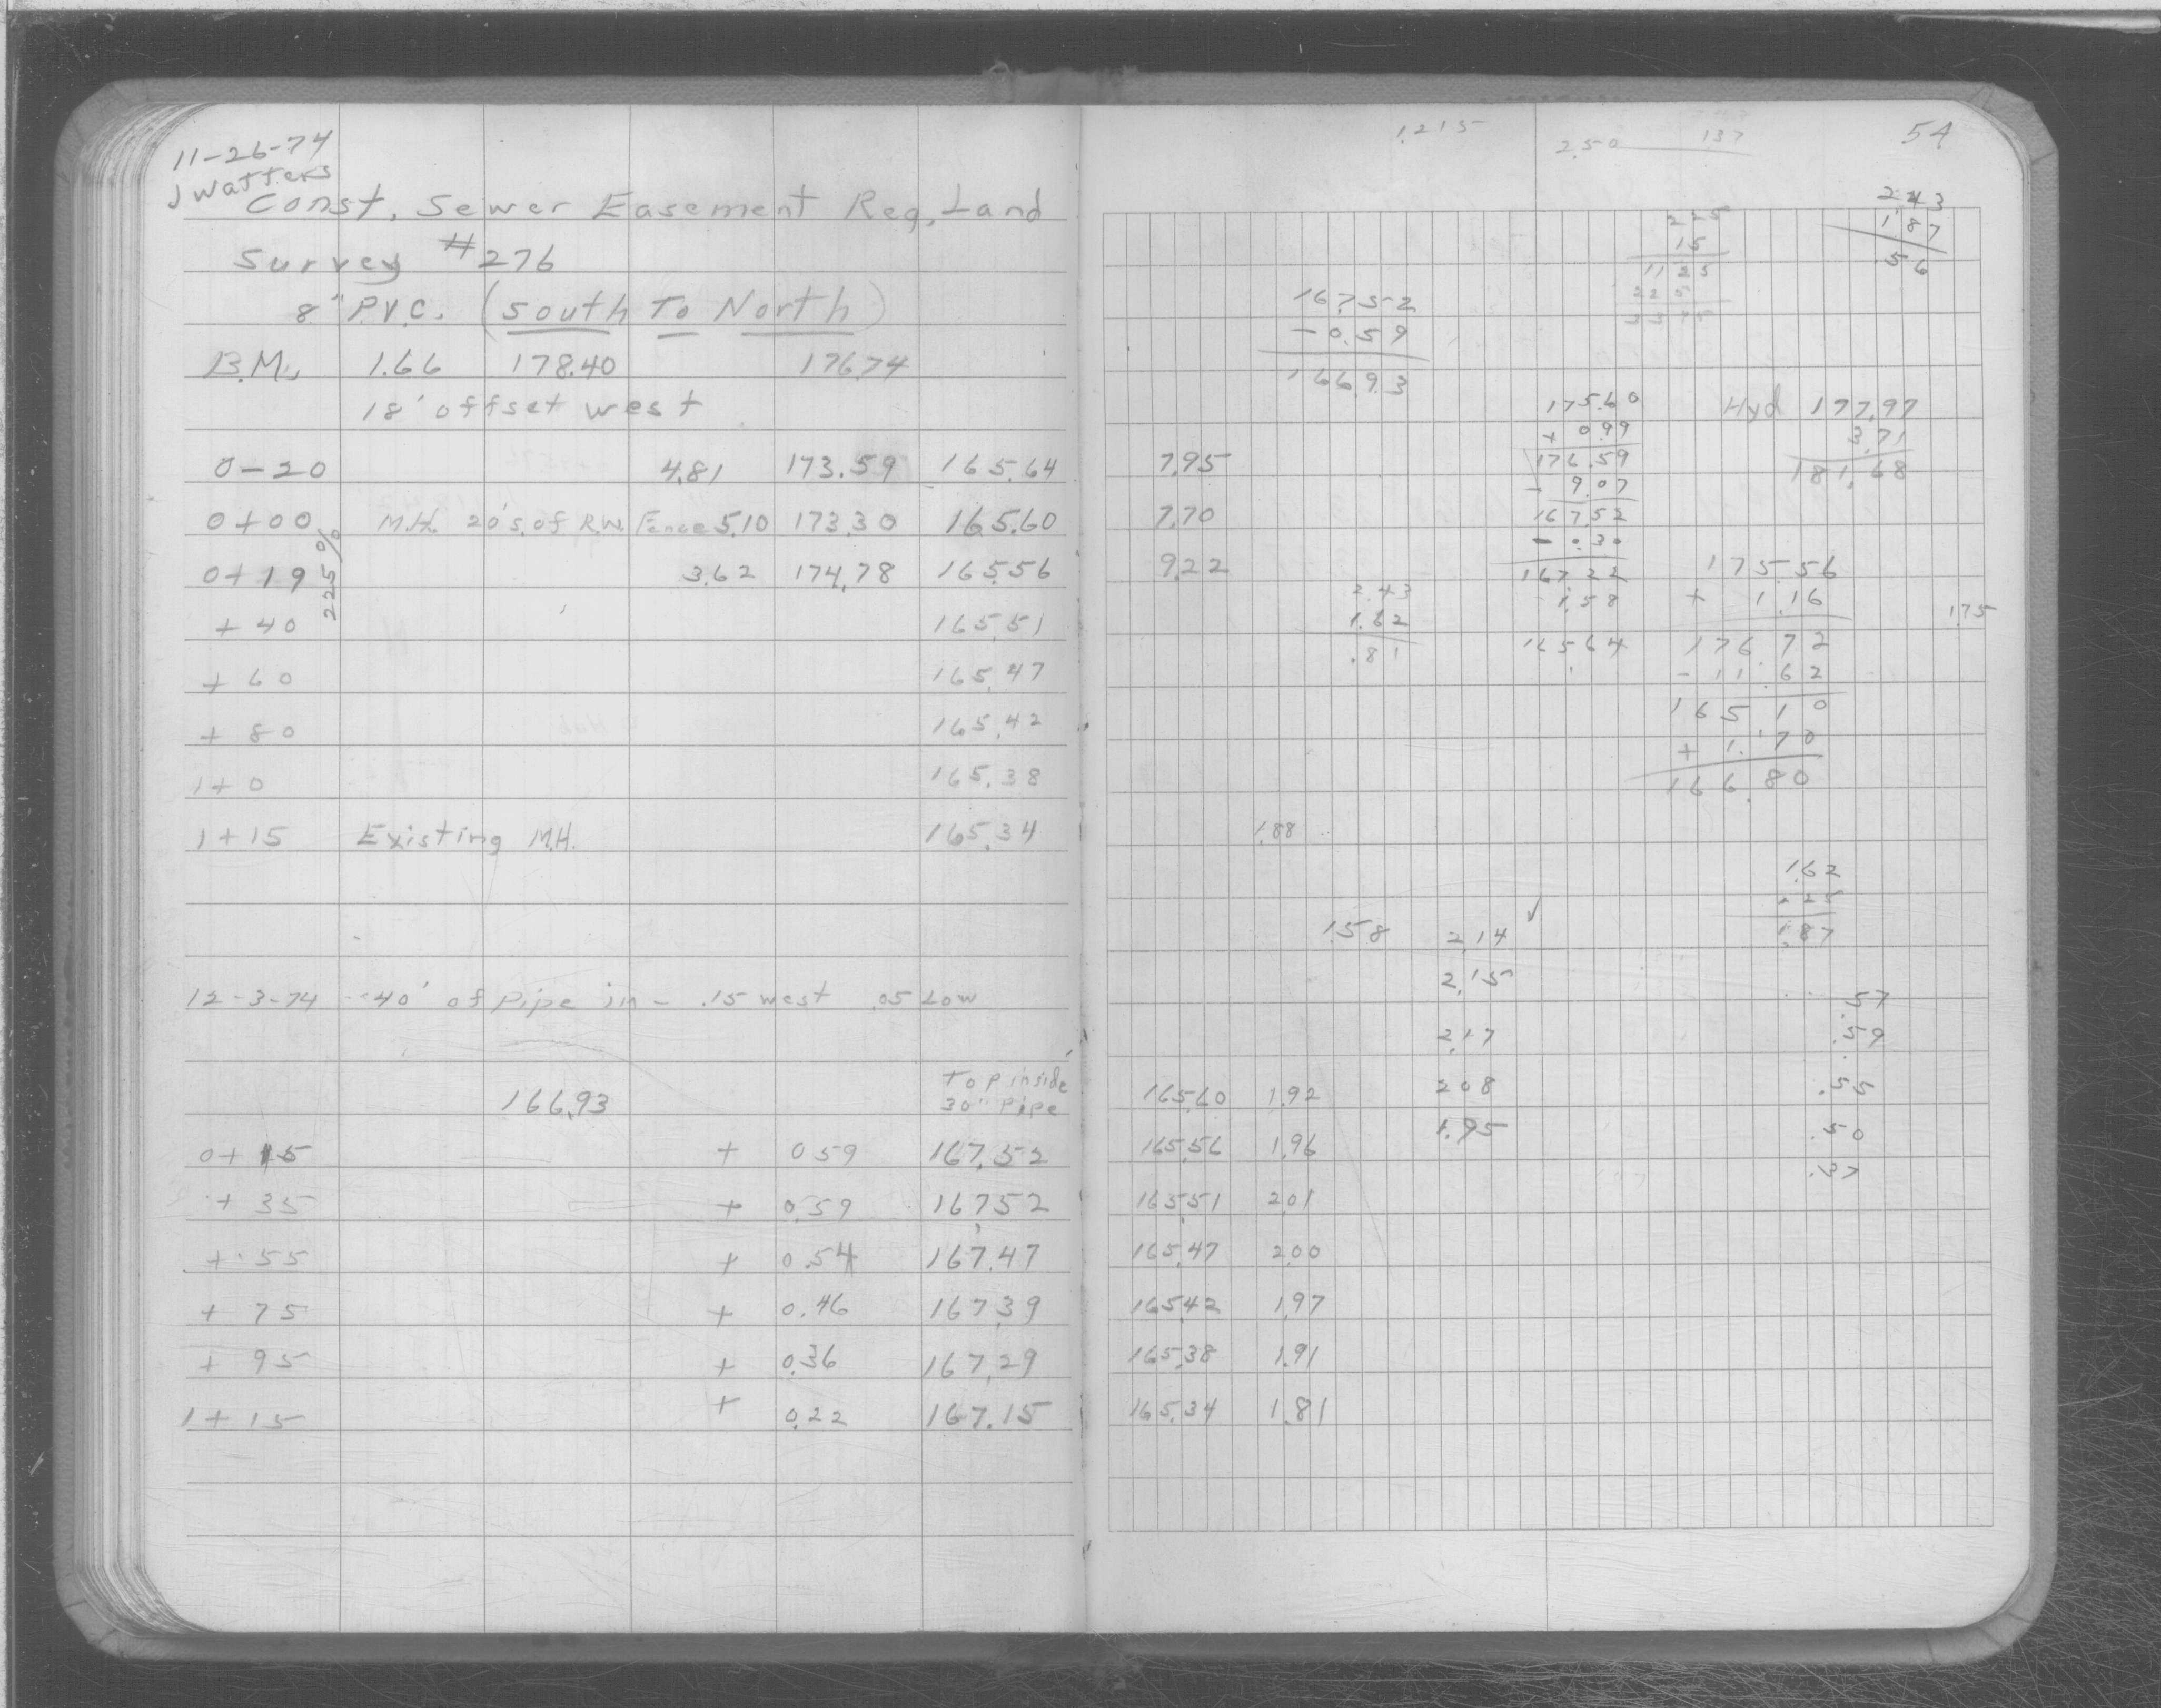 11-26-74
J Watters
Const. Sewer Easement Reg. Land
Survey #276
8" P.V.C. (South To North)
B.M. 1.66 178.40 176.74
18' offset west
0-20 4.81 173.59 165.64
0+00 M.H. 20's. of R.W. Fence 5.10 173.30 165.60
.225%
0+19 3.62 174.78 165.56
+40 165.51
+60 165.47
+80 165.42
1+0 165.38
1+15 Existing M.H. 165.34
12-3-74 -40' of Pipe in - .15 west .05 Low
Top inside
166.93 30" Pipe
0+15 + 0.59 167.52
+35 + 0.59 167.52
+55 + 0.54 167.47
+75 + 0.46 167.39
+95 + 0.36 167.29
1+15 + 0.22 167.15
54
1.215
2.50 137
2.43
1.87
.56
225
15
1125
225
3375
167.52
-0.59
166.93
175.60
+ 0.99
176.59
- 9.07
167.52
- 0.30
167.22
1.58
165.64
Hyd 177.97
3.71
181.68
7.95
7.70
9.22
2.43
1.62
.81
175.56
+ 1.16
176.72
- 11.62
165.10
+ 1.70
166.80
1.75
1.88
1.62
.25
1.87
1.58 2.14
2.15
2.17
2.08
1.95
.57
.59
.55
.50
.37
165.60 1.92
165.56 1.96
165.51 2.01
165.47 2.00
165.42 1.97
165.38 1.91
165.34 1.81